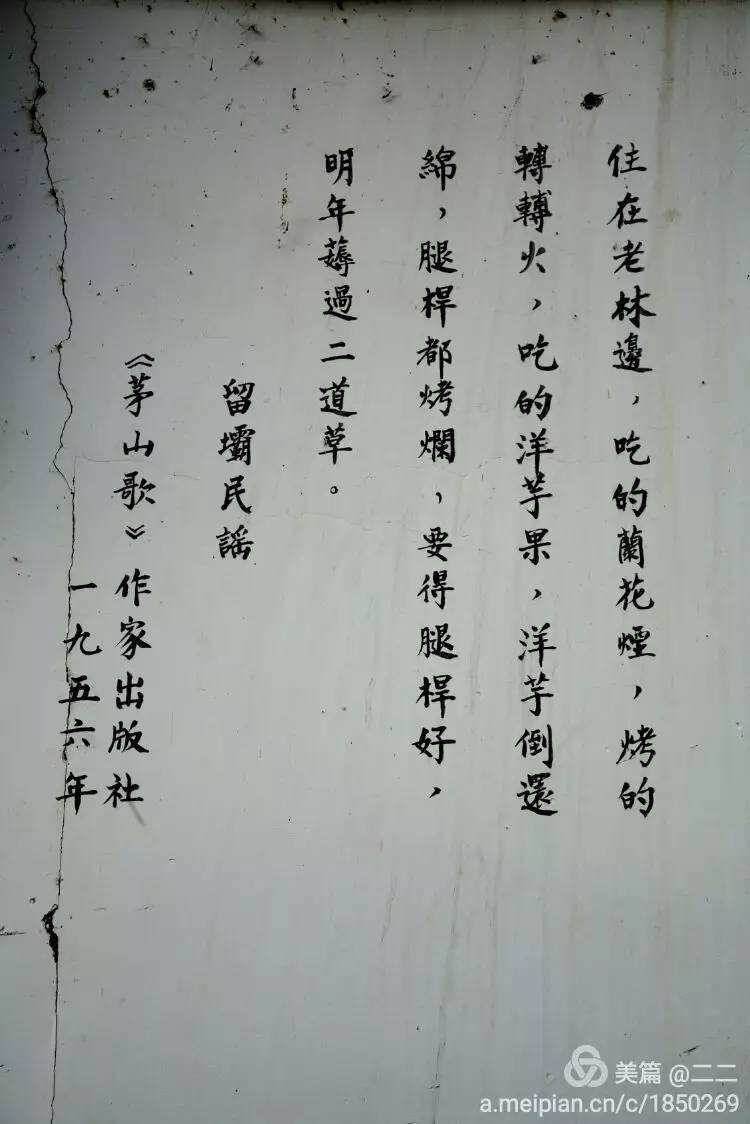 住在老林邊，吃的蘭花煙，烤的
轉轉火，吃的洋芋果，洋芋倒還
綿，腿桿都烤爛，要得腿桿好，
明年薅過二道草。
留壩民謡
《茅山歌》作家出版社
一九五六年
美篇 @二二
a.meipian.cn/c/1850269